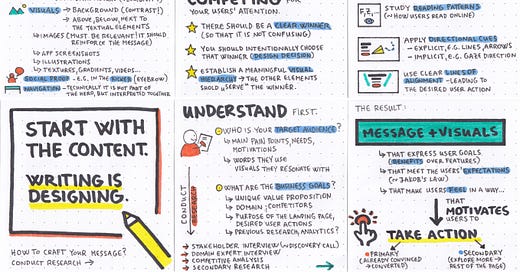 VISUALS → BACKGROUND (CONTRAST!)
→ ABOVE, BELOW, NEXT TO
THE TEXTUAL ELEMENTS
↳ IMAGES (MUST BE RELEVANT! IT SHOULD
REINFORCE THE MESSAGE)
↳ APP SCREENSHOTS
↳ ILLUSTRATIONS
↳ TEXTURES, GRADIENTS, VIDEOS...
SOCIAL PROOF - E.G. IN THE KICKER (EYEBROW)
NAVIGATION - TECHNICALLY IT IS NOT PART OF
THE HERO, BUT INTERPRETED TOGETHER
START WITH
THE CONTENT.
WRITING IS
DESIGNING.
HOW TO CRAFT YOUR MESSAGE?
CONDUCT RESEARCH →
COMPETING FOR
YOUR USERS' ATTENTION.
THERE SHOULD BE A CLEAR WINNER
(SO THAT IT IS NOT CONFUSING)
YOU SHOULD INTENTIONALLY CHOOSE
THAT WINNER (DESIGN DECISION)
ESTABLISH A MEANINGFUL VISUAL
HIERARCHY → THE OTHER ELEMENTS
SHOULD "SERVE" THE WINNER.
UNDERSTAND FIRST.
WHO IS YOUR TARGET AUDIENCE?
↳ MAIN PAIN POINTS, NEEDS,
MOTIVATIONS
↳ WORDS THEY USE
↳ VISUALS THEY RESONATE WITH
WHAT ARE THE BUSINESS GOALS?
↳ UNIQUE VALUE PROPOSITION
↳ DOMAIN, COMPETITORS
↳ PURPOSE OF THE LANDING PAGE,
DESIRED USER ACTIONS
↳ PREVIOUS RESEARCH, ANALYTICS?
CONDUCT RESEARCH
→ STAKEHOLDER INTERVIEW (~DISCOVERY CALL)
→ DOMAIN EXPERT INTERVIEW
→ COMPETITIVE ANALYSIS
→ SECONDARY RESEARCH
STUDY READING PATTERNS
(~HOW USERS READ ONLINE)
APPLY DIRECTIONAL CUES
- EXPLICIT, E.G. LINES, ARROWS
- IMPLICIT, E.G. GAZE DIRECTION
USE CLEAR LINES OF
ALIGNMENT - LEADING TO
THE DESIRED USER ACTION
THE RESULT:
MESSAGE + VISUALS
↳ THAT EXPRESS USER GOALS
(BENEFITS OVER FEATURES)
↳ THAT MEET THE USERS' EXPECTATIONS
(~JAKOB'S LAW)
↳ THAT MAKE USERS FEEL IN A WAY...
THAT
MOTIVATES
USERS TO
TAKE ACTION
PRIMARY
(ALREADY CONVINCED
→ CONVERTED)
SECONDARY
(EXPLORE MORE →
REST OF THE PAGE)